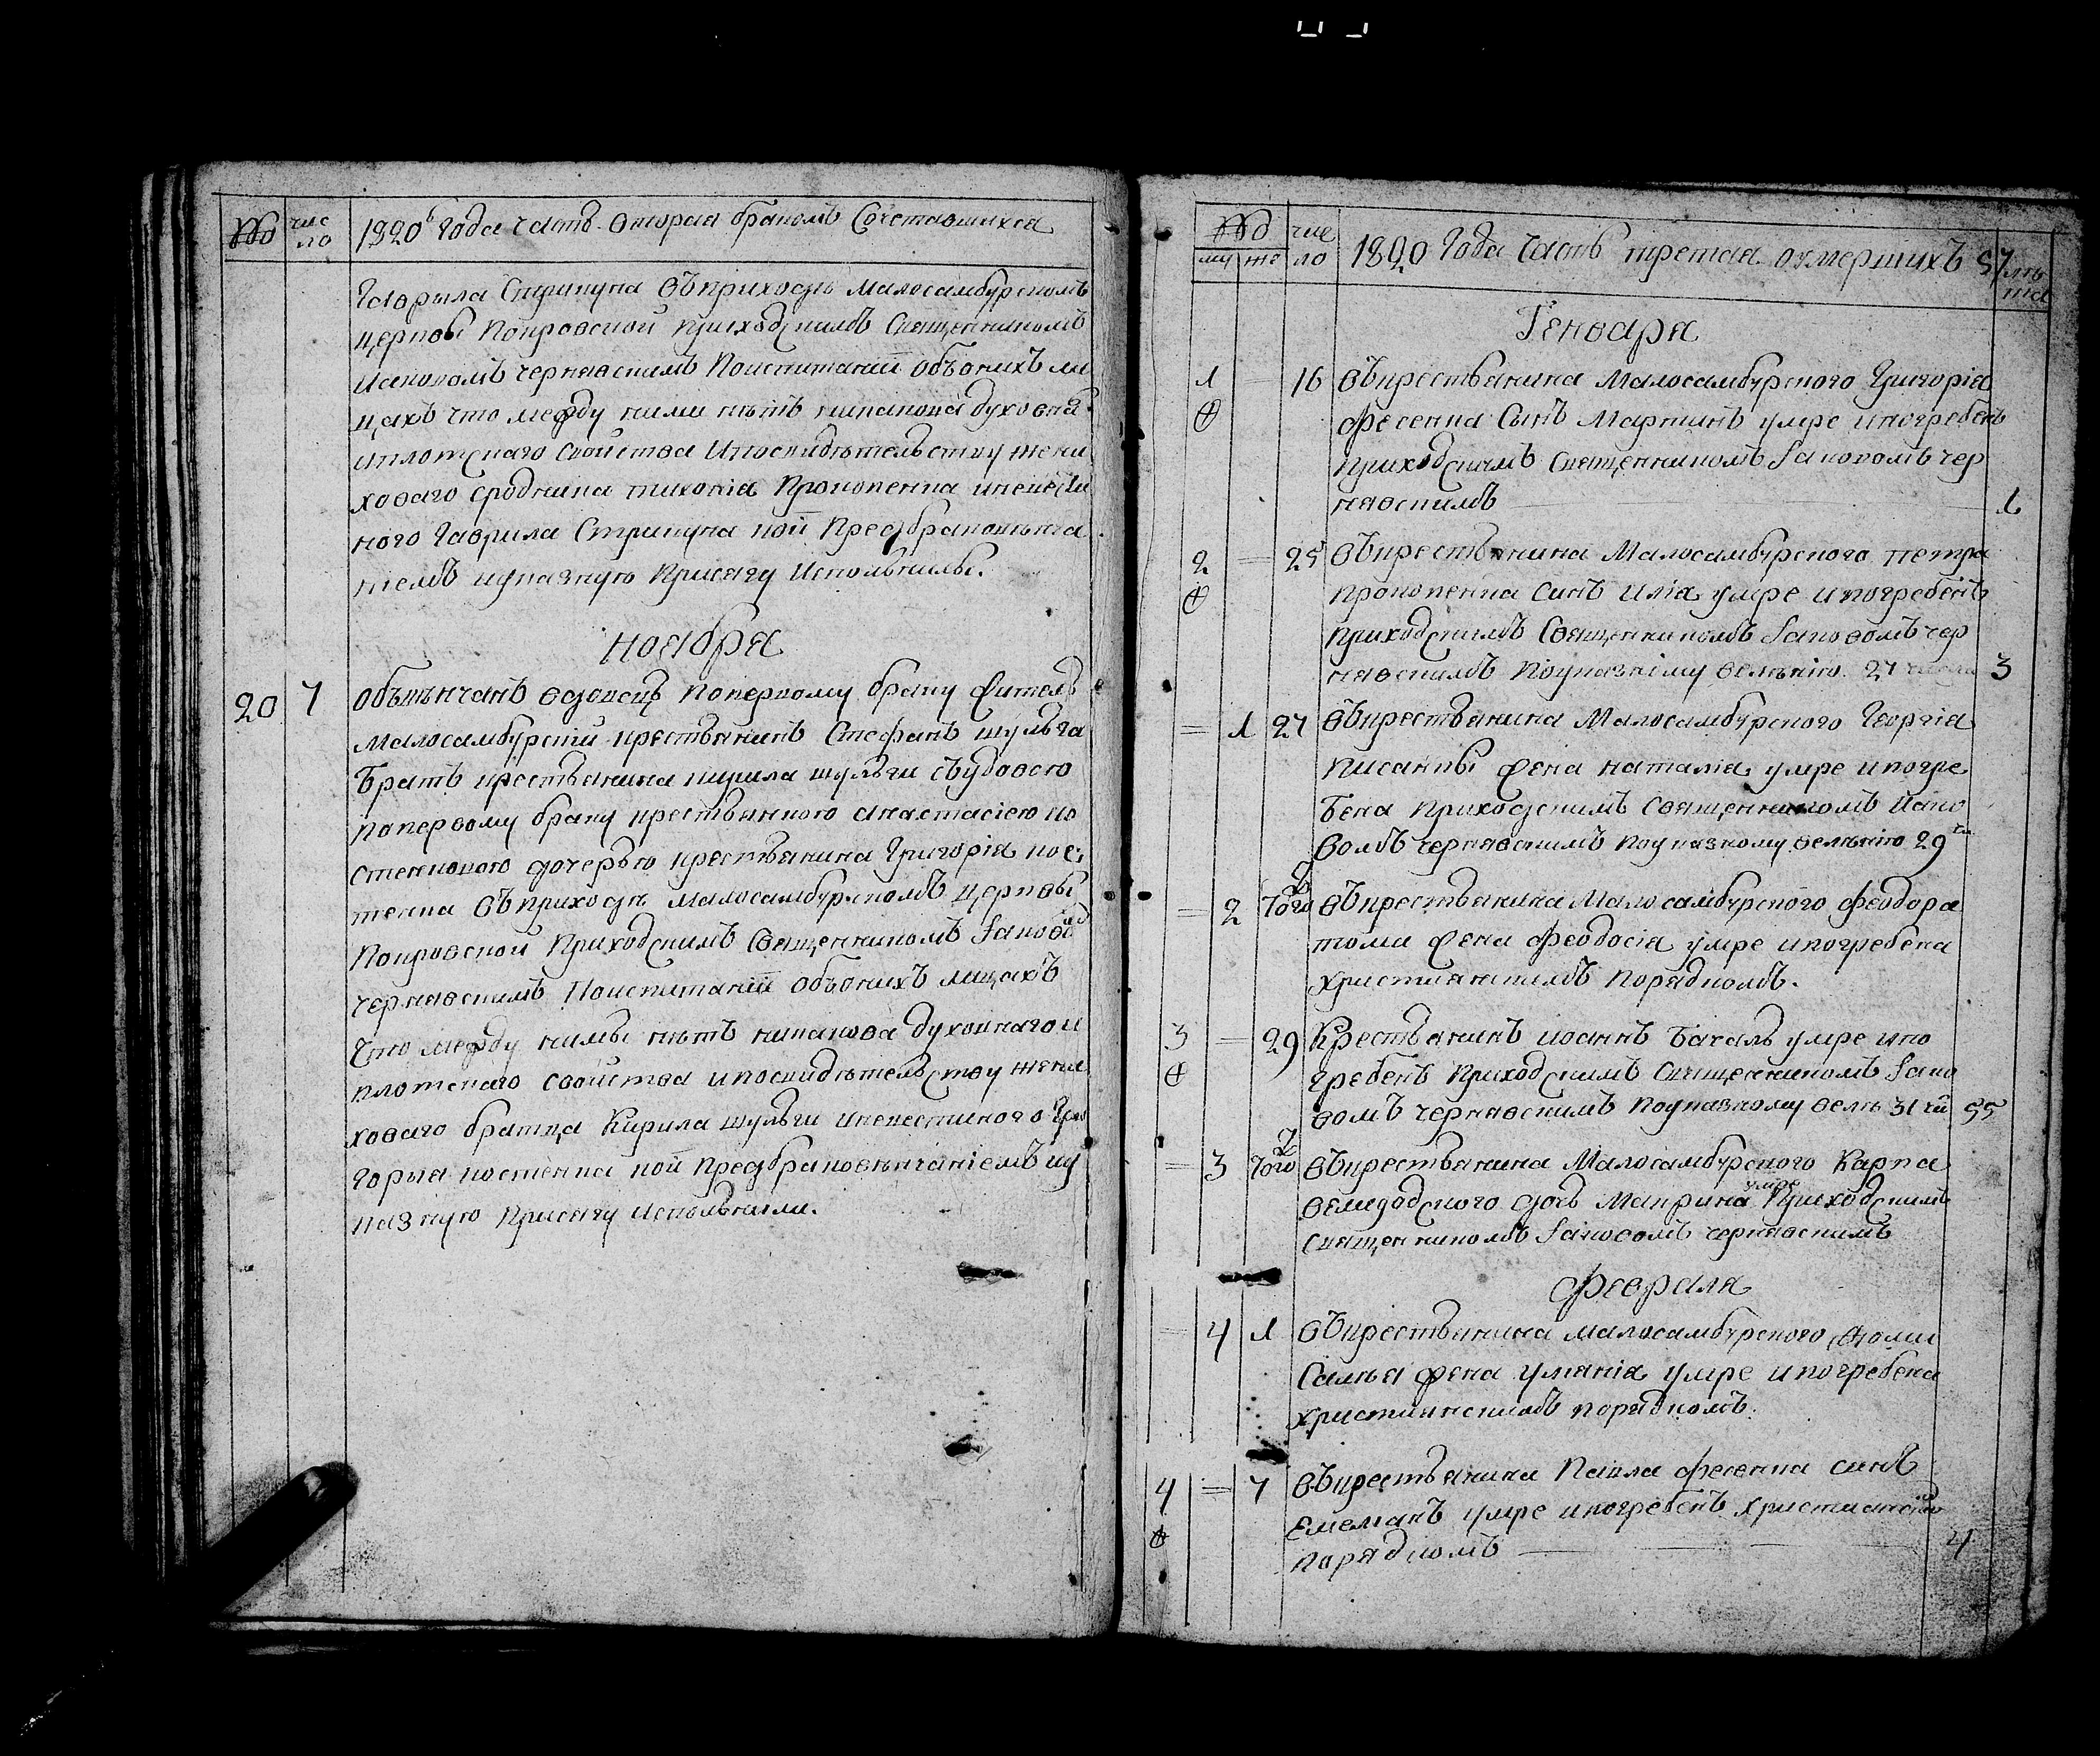 число
1820 года часть вторая бракомъ Сочетавшихся
Гаврыла Стрикуна въ приходѣ Малосамбурскомъ
церквы Покровской приходскимъ Священникомъ
Иаковомъ Чернявскимъ Поиспитаніи обоихъ ли
цахъ что между ними нѣтъ никакова духовна
и плотскаго свойства Ипосвидѣтельству жени
ховаго сродника тихонія Прокопенка иневѣст
ного Гаврила Стрикуна кои Предбраковѣнча
темъ указную присягу Исполнилы.
Ноября
20 7 Обвѣнчанъ вдовецъ поперvому браку жител
Малосамбурский крестьянинъ Стефанъ шульга
братъ крестьянина кирила шульги съ удовою
поперvому браку крестьянкою анастасіею ко
стенковою дочерью крестьянина Григорія кос
тенка въ приходѣ Малосамбурскомъ церквы
Покровской Приходскимъ Священникомъ Iаково
Чернявскимъ Поиспитаніи обоихъ лицахъ
Что между нимы нѣтъ никакова духовнаго и
плотскаго свойства ипосвидѣтельству жени
ховаго братца Кирила шульги иневестиного Гри
горыя костенка кои предбраковѣнчаніемъ ук
казную присягу исполнили.
число
му же
1820 Года Часть третая о умершихъ 57 лѣ
та
Генваря
1 = 16 въ крестьянина Малосамбурского Григорія
фесенка Сынъ Мартинъ умре ипогребенъ
приходскимъ Священникомъ Iаковомъ Чер
нявскимъ 1
2 = 25 въ крестьянина Малосамбурского петра
прокопенка синъ илія умре ипогребенъ
приходскимъ Священникомъ Iаковомъ Чер
нявскимъ поуказному велѣнію 27 числа 3
= 1 27 въ крестьянина Малосамбурского Георгія
Писанкы жена наталія умре ипогре
бена приходскимъ Священникомъ Иако
вомъ Чернявскимъ поуказному велѣнію 29 чи
= 2 Того въ крестьянина Малосамбурского феодора
томи жена феодосія умре ипогребена
христианскимъ порядкомъ.
3 = 29 Крестьянинъ иоаннъ бакалъ умре ипо
гребенъ приходскимъ Священникомъ Iако
вомъ Чернявскимъ поуказному велѣ 31 чи 55
= 3 Того въ крестьянина Малосамбурского Карпа
дочь Макрина умре Приходскимъ
Священникомъ Iаковомъ Чернявскимъ
февраля
= 4 1 въ крестьянина малосамбурского
жена уляния умре ипогребена
христианскимъ порядкомъ.
4 = 7 въ крестьянина Павла фесенка синъ
Емелианъ умре ипогребенъ христиански
порядкомъ 4